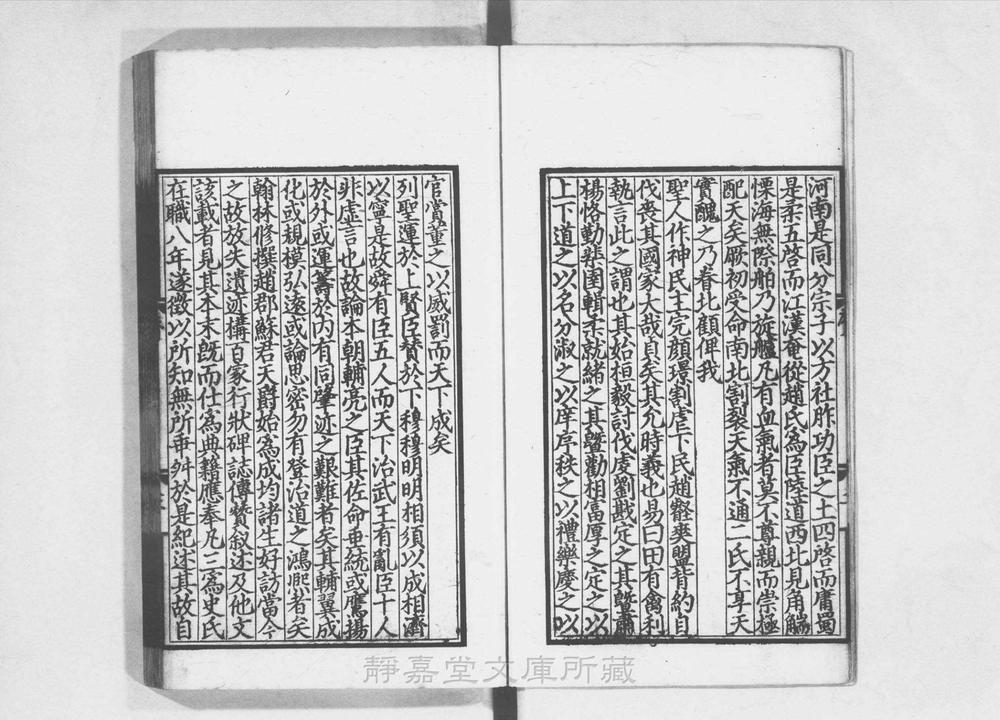 河南是同分宗子以方社胙功臣之土四啓而庸蜀
是柔五啓而江漢奄從趙氏爲臣陸道西北見角端
慄海無際舶乃旋艫凡有血氣者莫不尊親而崇極
配天矣厥初受命南北割裂天氣不通二氏不享天
實醜之乃眷北顧俾我
聖人作神民主完顔璟割虐下民趙㬎爽盟背約自
伐喪其國家大哉貞矣其允時義也易曰田有禽利
執言此之謂也其始桓毅討伐虔劉戡定之其曁肅
楊恪勤桒圉輯柔就緒之其曁勸相富厚之定之以
上下道之以名分淑之以庠序秩之以禮樂縻之以
官賞董之以威罰而天下成矣
列聖運於上賢臣賛於下穆穆明明相須以成相濟
以寧是故舜有臣五人而天下治武王有亂臣十人
非虛言也故論本朝輔亮之臣其佐命垂統或鷹揚
於外或運籌於内有同肇迹之艱難者矣其輔翼成
化或規模弘遠或論思密勿有聱治道之鴻熈者矣
翰林修撰趙郡蘇君天爵始爲成均諸生好訪當今
之故放失遺迹構百家行狀碑誌傳賛叙述及他文
該載者見其本末旣而仕爲典籍應奉凡三爲史氏
在職八年遂徵以所知無所乖舛於是紀述其故自
靜嘉堂文庫所藏